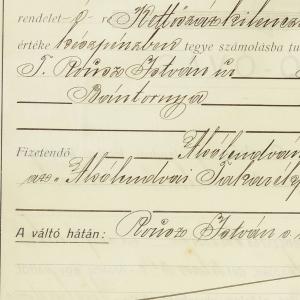 rendelet-é- r Kettőszázkilencz
értéke készpénzben tegye számolásba tu
T. Rousz István úr
Bántornya
Fizetendő Alsólendvan
az Alsólendvai Takarékp
A váltó hátán: Rousz István s.